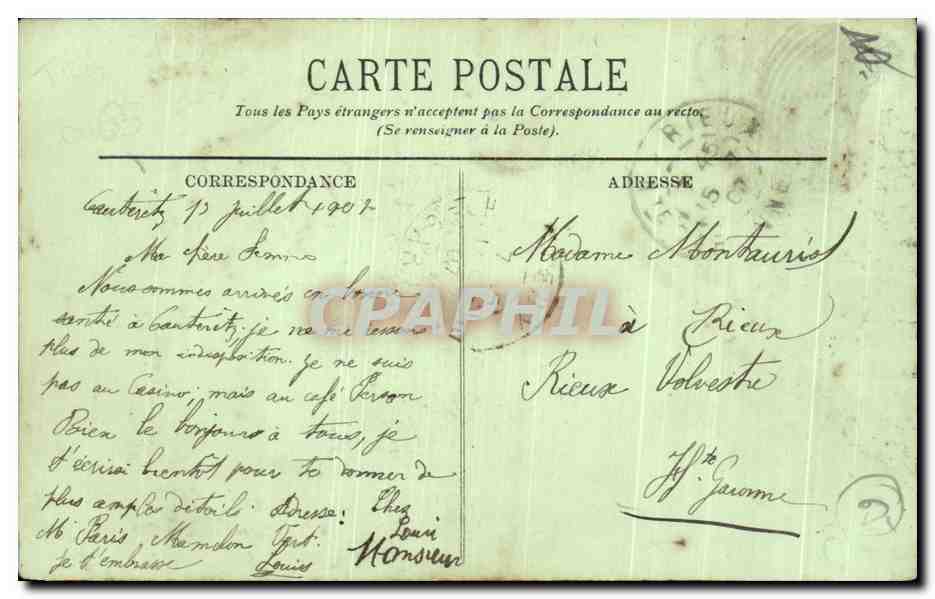 CARTE POSTALE
Tous les Pays étrangers n'acceptent pas la Correspondance au recto.
(Se renseigner à la Poste).
CORRESPONDANCE
Cauteretz juillet
Ma chère
Nous sommes arrivés en bonne
santé à Cauteretz; je ne me ressens
plus de mon indisposition. Je ne suis
pas au Casino, mais au café Person
Bien le bonjours à tous, je
t'écrirai bientôt pour te donner de
plus amples détails. Adresse: Chez
Louis
Mr Paris, Mamelon Vert. Monsieur
je t'embrasse Louis
ADRESSE
Madame Montauriol
à Rieux
Rieux Volvestre
Hte Garonne
RIEUX
CPAPHIL